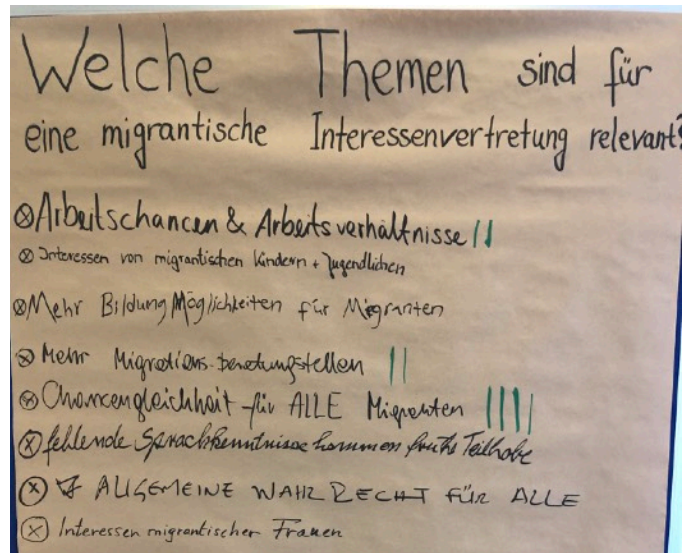 Welche Themen sind für
eine migrantische Interessenvertretung relevant?
Arbeitschancen & Arbeitsverhältnisse ||
Interessen von migrantischen Kindern + Jugendlichen
Mehr Bildung Möglichkeiten für Migranten
Mehr Migrations-beratungstellen ||
Chancengleichheit für ALLE Migranten ||||
fehlende Sprachkenntnisse hemmen Teilhabe
ALLGEMEINE WAHLRECHT FÜR ALLE
Interessen migrantischer Frauen